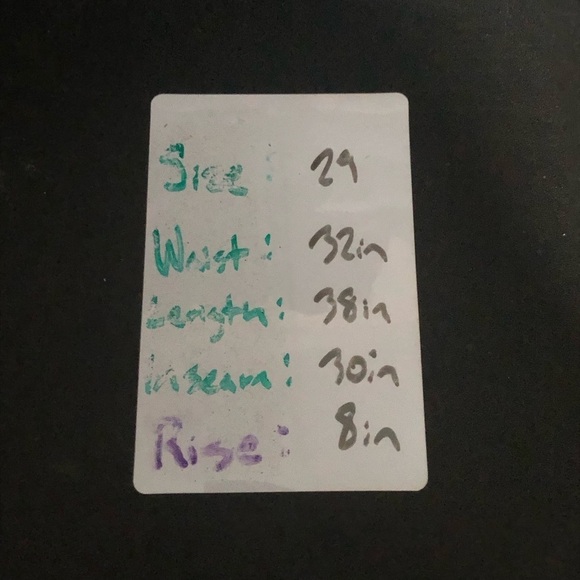 Size: 29
Waist: 32in
Length: 38in
inseam: 30in
Rise: 8in